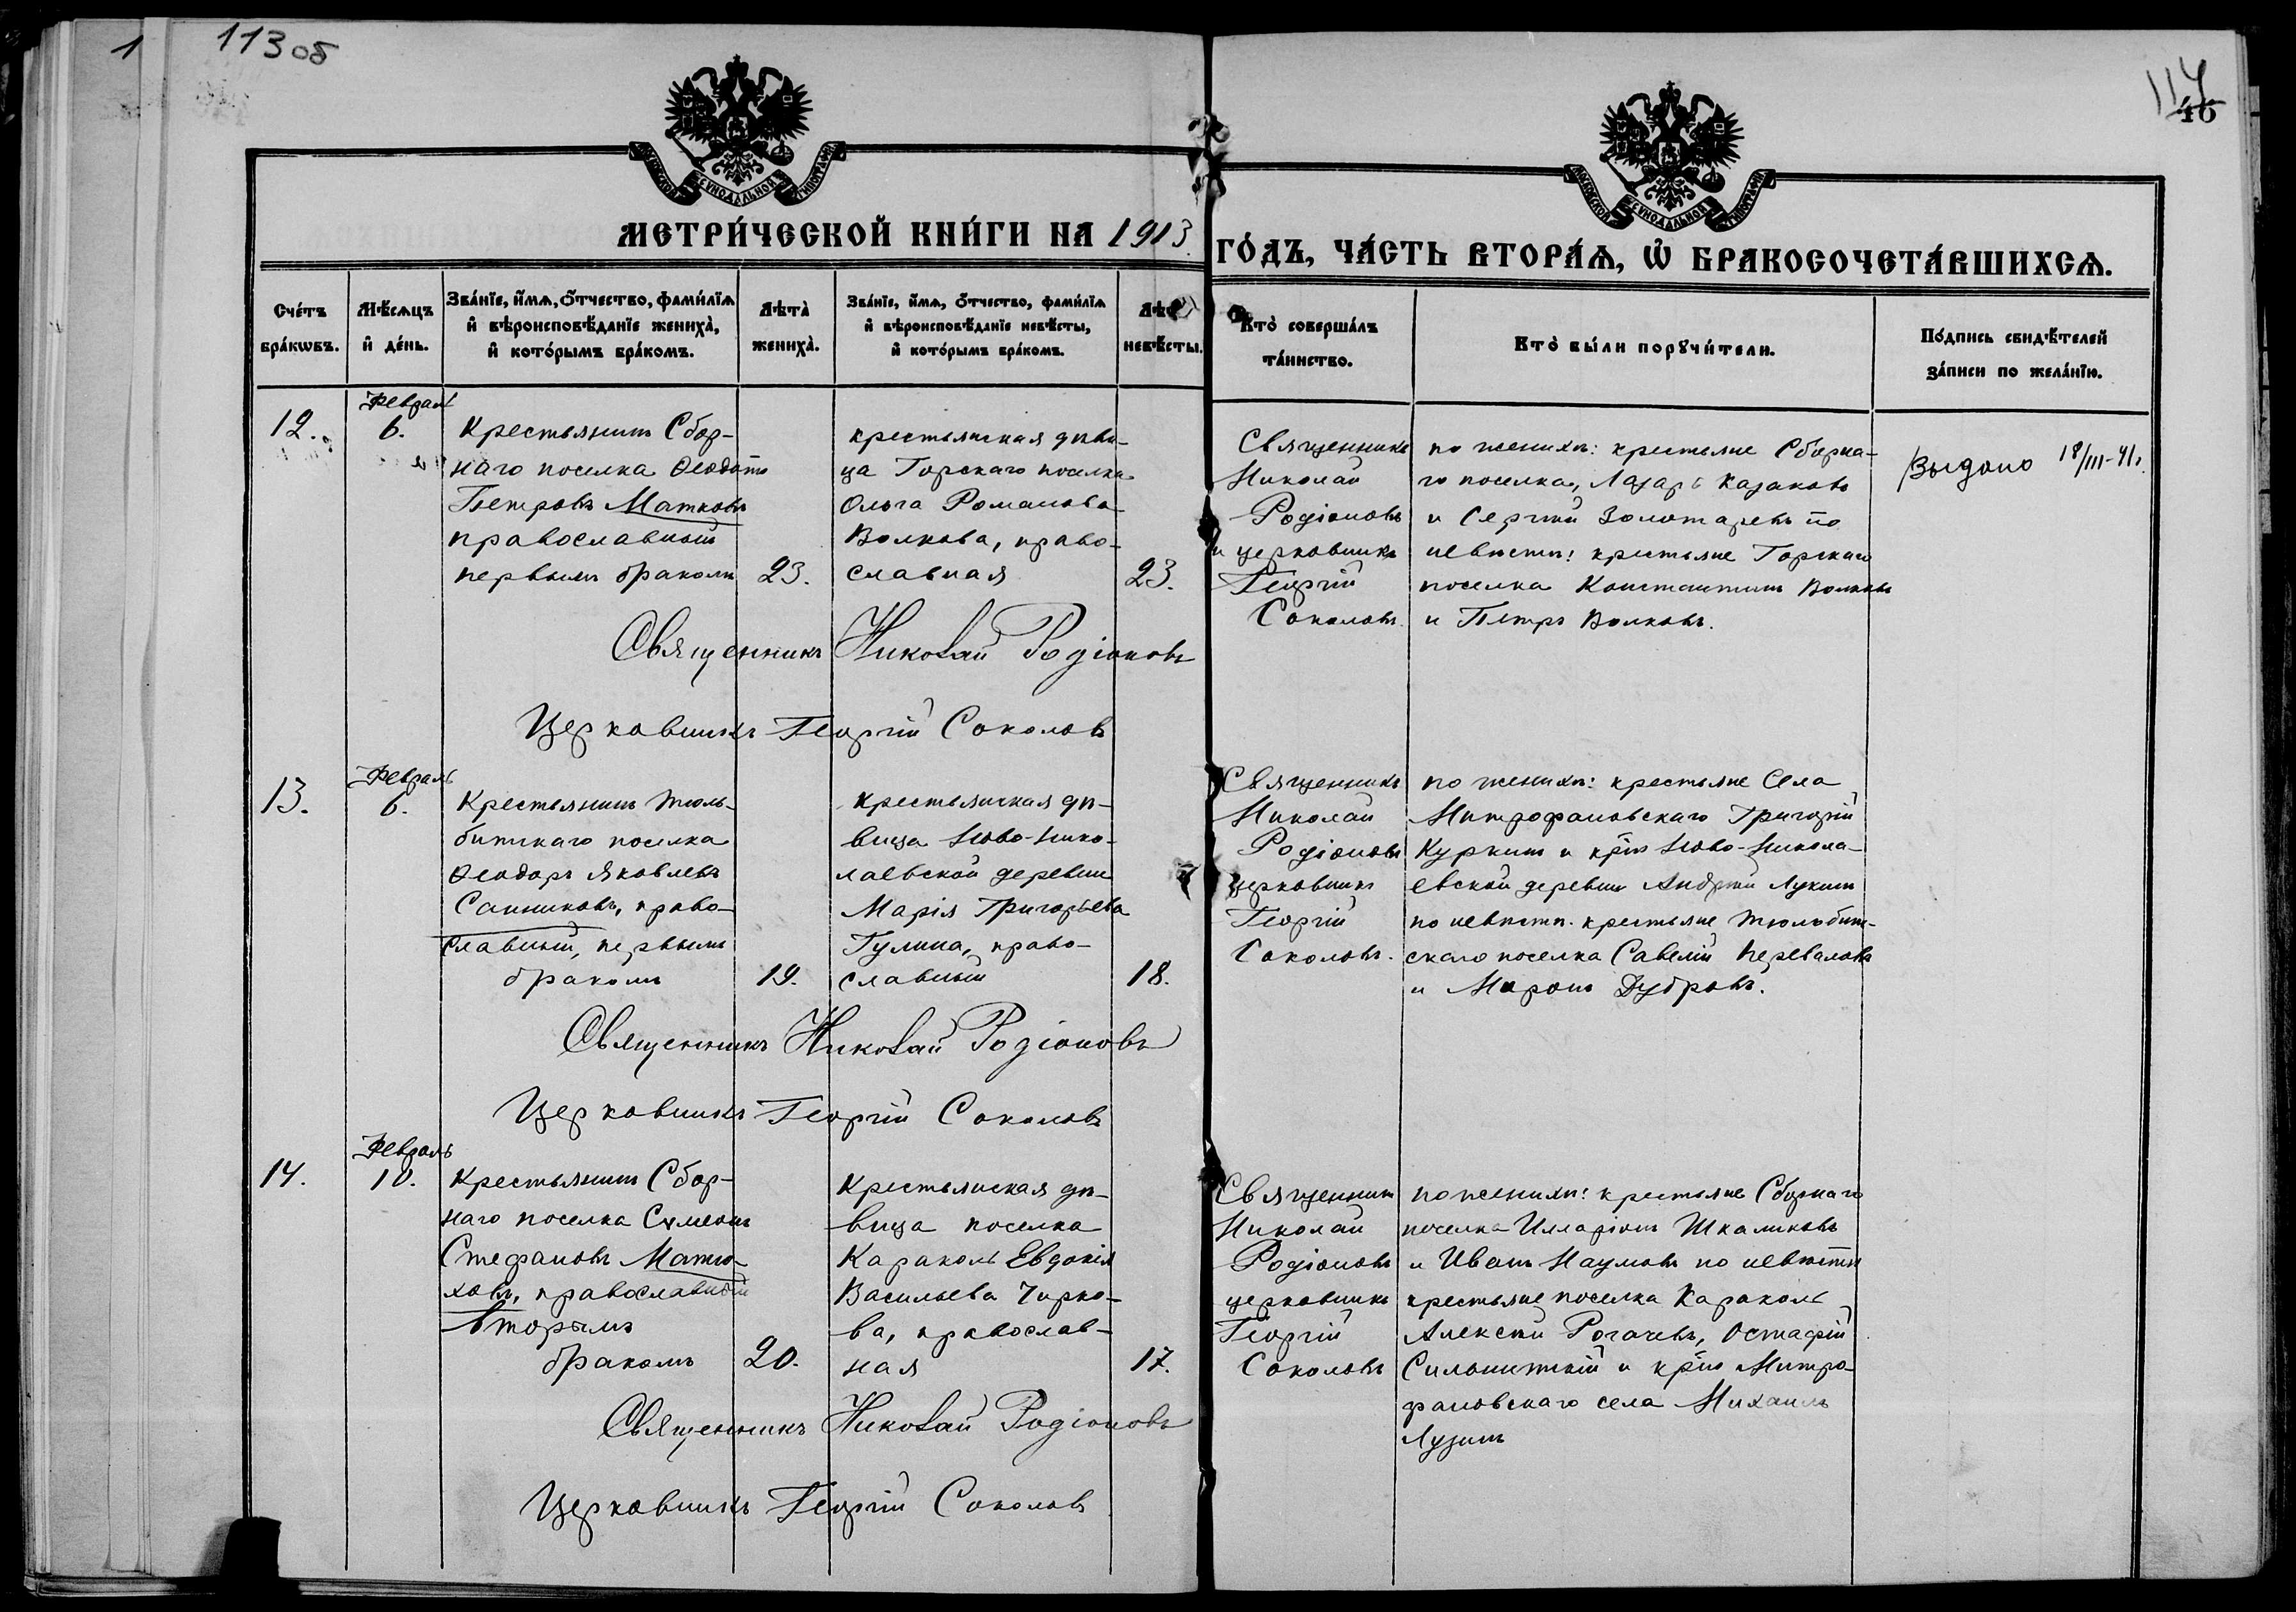 1
113 об
114
46
МОСКОВСКОЙ СѴНОДАЛЬНОЙ ТИПОГРАФІИ
МОСКОВСКОЙ СѴНОДАЛЬНОЙ ТИПОГРАФІИ
МЕТРИ́ЧЕСКОЙ КНИ́ГИ НА 1913
ГО́ДЪ, ЧА́СТЬ ВТОРА́Ѧ, Ѡ҆ БРАКОСОЧЕТА́ВШИХСѦ.
Сче́тъ
бра́кѡвъ.
Мѣ́сѧцъ
и҆ де́нь.
Зва́нїе, и҆́мѧ, ѻ҆́тчество, фами́лїѧ
и҆ вѣроисповѣ́данїе жениха̀,
и҆ кото́рымъ бра́комъ.
Лѣта̀
жениха̀.
Зва́нїе, и҆́мѧ, ѻ҆́тчество, фами́лїѧ
и҆ вѣроисповѣ́данїе невѣ́сты,
и҆ кото́рымъ бра́комъ.
невѣ́сты.
Кто̀ соверша́лъ
та́инство.
Кто̀ бы́ли порꙋчи́тели.
По́дпись свидѣ́телей
за́писи по жела́нїю.
12.
Феврал
6.
Крестьянинъ Сбор-
наго поселка Ѳеодотъ
Петровъ Матковъ
православный
первымъ бракомъ
23.
крестьянская дѣви-
ца Горскаго поселка
Ольга Романова
Волкова, право-
славная
23.
Священникъ
Николай
Родіоновъ
и церковникъ
Георгій
Соколовъ.
по женихѣ: крестьяне Сборна-
го поселка, Лазарь Казаковъ
и Сергѣй Золотаревъ по
невѣстѣ: крестьяне Горскаго
поселка Константинъ Волковъ
и Петръ Волковъ.
Выдано 18/III-41.
Священникъ Николай Родіоновъ
Церковникъ Георгій Соколовъ
13.
Февраль
6.
Крестьянинъ Тюль-
битскаго поселка
Ѳеодоръ Яковлевъ
Санниковъ, право-
славный, первымъ
бракомъ
19.
крестьянская дѣ-
вица Ново-Нико-
лаевской деревни
Марія Григорьева
Гулина, право-
славный
18.
Священникъ
Николай
Родіоновъ
церковникъ
Георгій
Соколовъ.
по женихѣ: крестьяне Села
Митрофановскаго Григорій
Куркинъ и кр̃нъ Ново-Никола-
евской деревни Андрей Лукинъ
по невѣстѣ. крестьяне Тюльбит-
скаго поселка Савелій Переваловъ
и Миронъ Дубровъ.
Священникъ Николай Родіоновъ
Церковникъ Георгій Соколовъ
14.
Февраль
10.
Крестьянинъ Сбор-
наго поселка Сѵмеонъ
Стефановъ Матю-
ховъ, православный
вторымъ
бракомъ
20.
Крестьянская дѣ-
вица поселка
Караколь Евдокія
Васильева Чирко-
ва, православ-
ная
17.
Священникъ
Николай
Родіоновъ
церковникъ
Георгій
Соколовъ
по женихѣ: крестьяне Сборнаго
поселка Илларіонъ Шкаликовъ
и Иванъ Наумовъ по невѣстѣ
крестьяне поселка Караколь
Алексѣй Рогачевъ, Остафій
Сильнитскій и кр̃нъ Митро-
фановскаго села Михаилъ
Лузинъ
Священникъ Николай Родіоновъ
Церковникъ Георгій Соколовъ